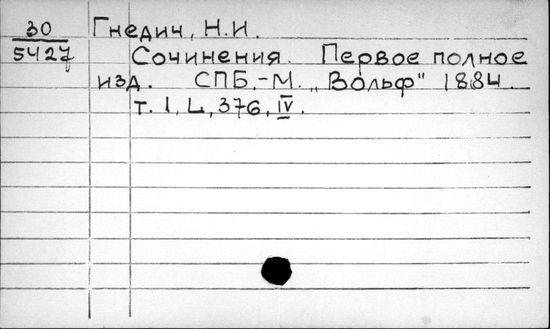 30 Гнедич, Н.И.
5427 Сочинения. Первое полное
изд. СПБ.-М. „Вольф" 1884.
т. 1, L, 376, IV.